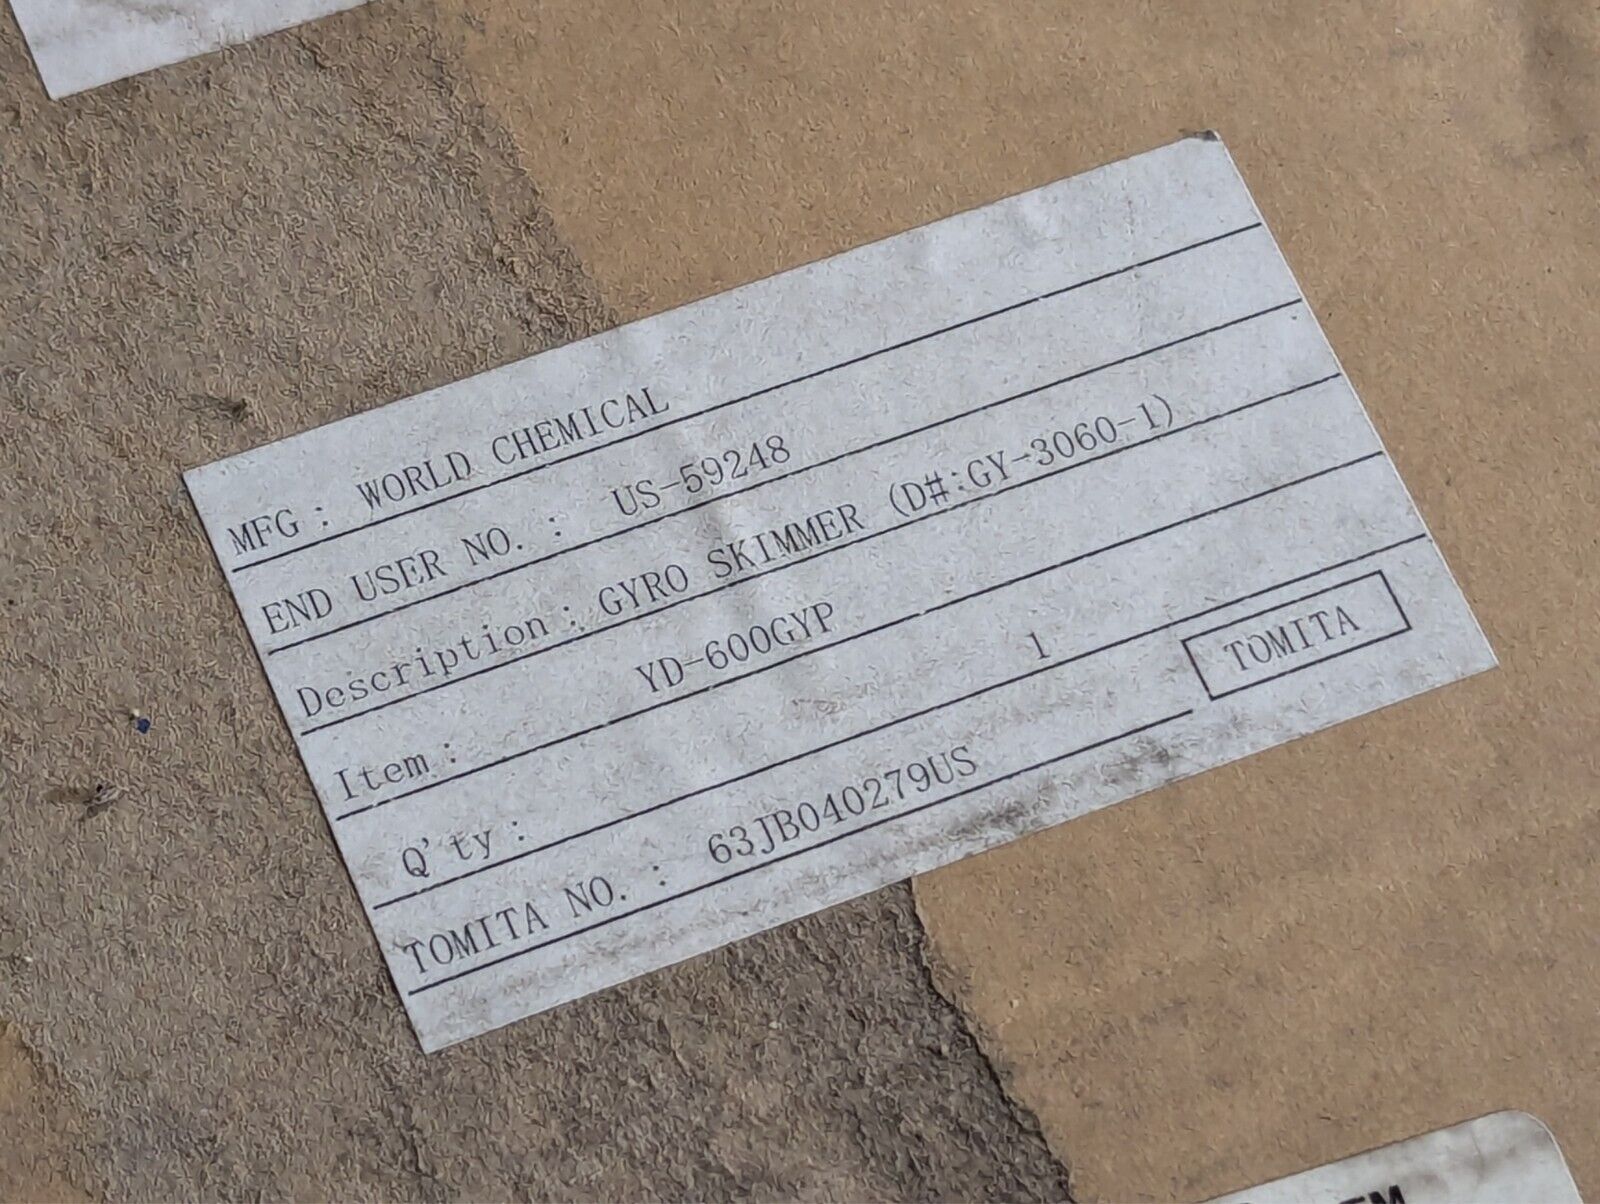 MFG : WORLD CHEMICAL
END USER NO. : US-59248
Description : GYRO SKIMMER (D#:GY-3060-1)
Item : YD-600GYP
Q'ty : 1
TOMITA
TOMITA NO. : 63JB040279US